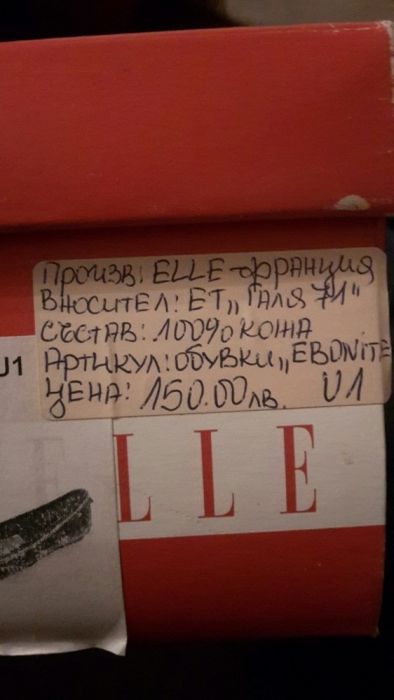 Произв: ELLE - Франция
Вносител: ЕТ „Галя 71"
Състав: 100% кожа
Артикул: обувки „EBONITE
Цена: 150.00 лв. U1
U1
ELLE